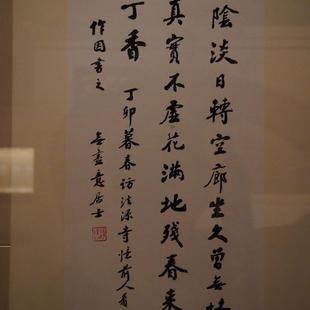 陰淡日轉空廊坐久曾無
真實不虛花滿地殘春来
丁香 丁卯暮春訪法源寺憶前人有
作因書之
無盡意居士